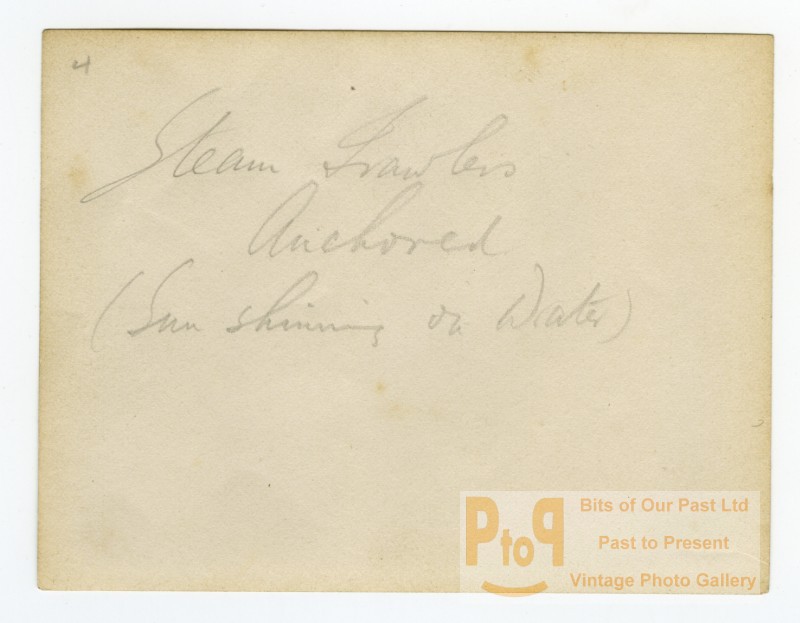 4
Steam Trawlers
Anchored
(Sun shinning on Water)
PtoP
Bits of Our Past Ltd
Past to Present
Vintage Photo Gallery